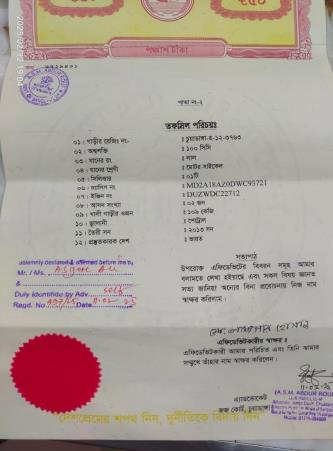 পঞ্চাশ টাকা
পাতা নং-২
তফসিল পরিচয়ঃ
০১। গাড়ীর রেজিঃ নং- ঃ চুয়াডাঙ্গা-হ-১২-৩৭৬৩
০২। অশ্বশক্তি ঃ ১০০ সিসি
০৩। যানের রং ঃ লাল
০৪। যানের শ্রেণী ঃ মোটর সাইকেল
০৫। সিলিন্ডার ঃ ০১টি
০৬। চ্যাসিস নং ঃ MD2A18AZ0DWC93721
০৭। ইঞ্জিন নং ঃ DUZWDC22712
০৮। আসন সংখ্যা ঃ ০২ জন
০৯। খালী গাড়ীর ওজন ঃ ১০৯ কেজি
১০। জ্বালানী ঃ পেট্রোল
১১। তৈরী সন ঃ ২০১৩ সন
১২। প্রস্তুতকারক দেশ ঃ ভারত
সত্যপাঠ
উপরোক্ত এফিডেভিটের বিবরন সমূহ আমার
বলামতে লেখা হইয়াছে এবং সকল বিষয় জ্ঞানত
সত্য জানিয়া অন্যের বিনা প্ররোচনায় নিজ নাম
স্বাক্ষর করিলাম।
Solemnly declared & affirmed before me by
Mr. / Ms.
&
Duly identified by Adv. self
Regd. No. Date 11.02.25
এফিডেভিটকারীর স্বাক্ষর ঃ
এফিডেভিটকারী আমার পরিচিত এবং তিনি আমার
সম্মুখে তাঁহার নাম স্বাক্ষর করিলেন।
এ্যাডভোকেট
জজ কোর্ট, চুয়াডাঙ্গা
(A.S.M. ABDUR ROUF)
দেশপ্রেমের শপথ নিন, দুর্নীতিকে বিদায় দিন